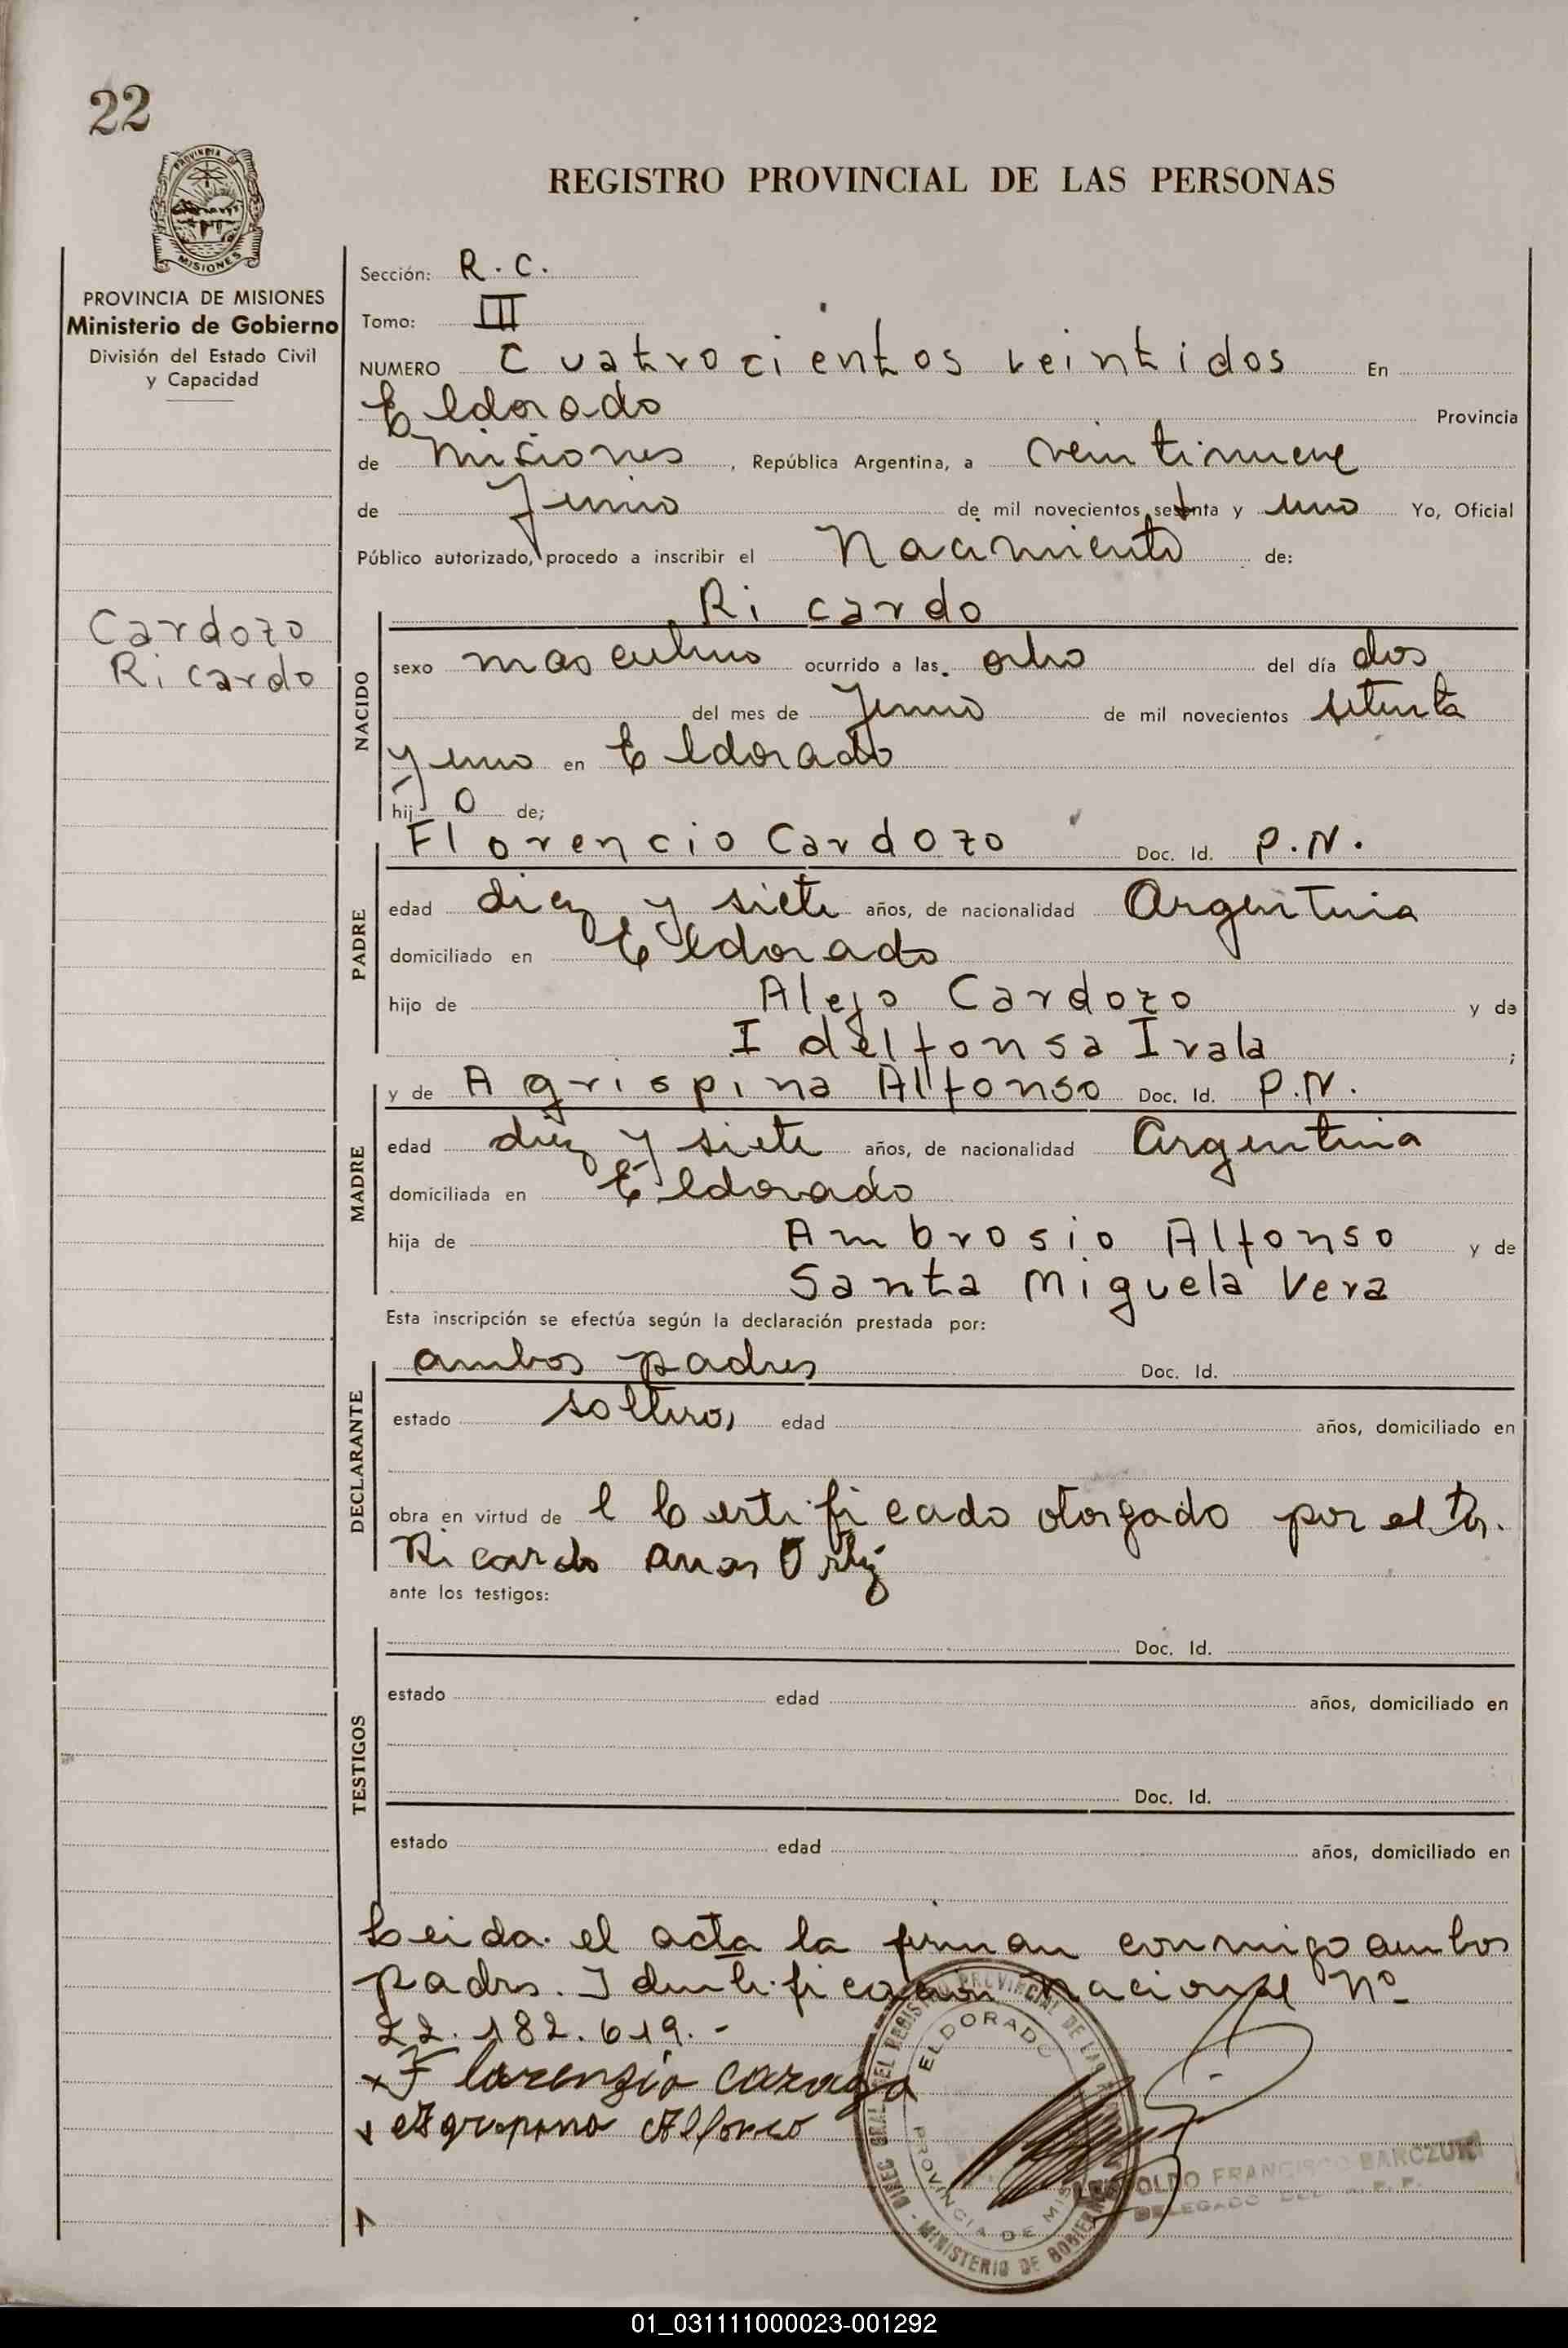 22
PROVINCIA DE
MISIONES
REGISTRO PROVINCIAL DE LAS PERSONAS
PROVINCIA DE MISIONES
Ministerio de Gobierno
División del Estado Civil
y Capacidad
Cardozo
Ricardo
Sección: R. C.
Tomo: III
NUMERO Cuatrocientos veintidos En
Eldorado Provincia
de Misiones, República Argentina, a veintinueve
de Junio de mil novecientos setenta y uno Yo, Oficial
Público autorizado, procedo a inscribir el Nacimiento de:
NACIDO
Ricardo
sexo masculino ocurrido a las ocho del día dos
del mes de Junio de mil novecientos setenta
y uno en Eldorado
hij o de;
PADRE
Florencio Cardozo Doc. Id. P.N.
edad diez y siete años, de nacionalidad Argentina
domiciliado en Eldorado
hijo de Alejo Cardozo y de
Idelfonsa Irala ;
MADRE
y de Agrispina Alfonso Doc. Id. P.N.
edad diez y siete años, de nacionalidad Argentina
domiciliada en Eldorado
hija de Ambrosio Alfonso y de
Santa Miguela Vera
Esta inscripción se efectúa según la declaración prestada por:
DECLARANTE
ambos padres Doc. Id.
estado solteros edad años, domiciliado en
obra en virtud de l Certificado otorgado por el Dr.
Ricardo Ortiz
ante los testigos:
TESTIGOS
Doc. Id.
estado edad años, domiciliado en
Doc. Id.
estado edad años, domiciliado en
Leida el acta la firman conmigo ambos
padres. Identificacion Nacional Nº
22.182.619.-
x Florenzio
x Alfonso
ELDORADO
PROVINCIA DE MIS
REGISTRO PROVINCIAL DE LAS
MINISTERIO DE GOBIER
LEOPOLDO FRANCISCO BARCZUK
DELEGADO
01_031111000023-001292